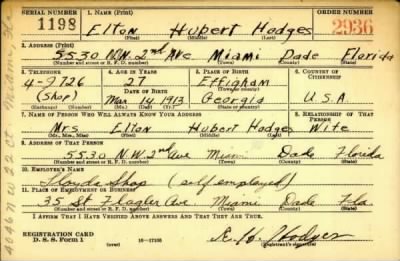 SERIAL NUMBER 1. NAME (Print) ORDER NUMBER
1198 Elton Hubert Hodges 2936
(First) (Middle) (Last)
2. ADDRESS (Print)
5530 N.W. 2nd Ave Miami Dade Florida
(Number and street or R. F. D. number) (Town) (County) (State)
3. TELEPHONE 4. AGE IN YEARS 5. PLACE OF BIRTH 6. COUNTRY OF CITIZENSHIP
4-9726 27 Effigham
DATE OF BIRTH (Town or county)
(Shop) Mar 14, 1913 Georgia U.S.A.
(Exchange) (Number) (Mo.) (Day) (Yr.) (State or country)
7. NAME OF PERSON WHO WILL ALWAYS KNOW YOUR ADDRESS 8. RELATIONSHIP OF THAT PERSON
Mrs Elton Hubert Hodges Wife
(Mr., Mrs., Miss) (First) (Middle) (Last)
9. ADDRESS OF THAT PERSON
5530 N.W. 2nd Ave Miami Dade Florida
(Number and street or R. F. D. number) (Town) (County) (State)
10. EMPLOYER'S NAME
Shop (self employed)
11. PLACE OF EMPLOYMENT OR BUSINESS
35 St Flagler Ave Miami Dade Fla
(Number and street or R. F. D. number) (Town) (County) (State)
I AFFIRM THAT I HAVE VERIFIED ABOVE ANSWERS AND THAT THEY ARE TRUE.
REGISTRATION CARD
D. S. S. Form 1 (over) 16-17105 E. H. Hodges
(Registrant's signature)
N W 22 Ct Miami Fla